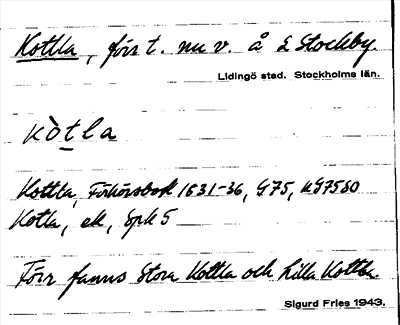 Kottla, förr t. nu v. å L Stockby.
Lidingö stad. Stockholms län.
kòtla
Kottla, Förhörsbok 1831-36, G75, HG7550
Kotla, ek, Spk 5
Förr fanns Stora Kottla och Lilla Kottla.
Sigurd Fries 1943.